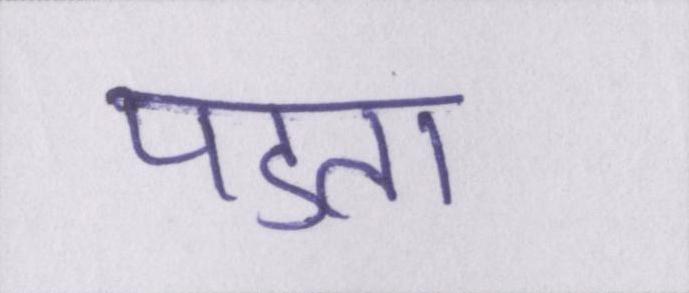 पडता